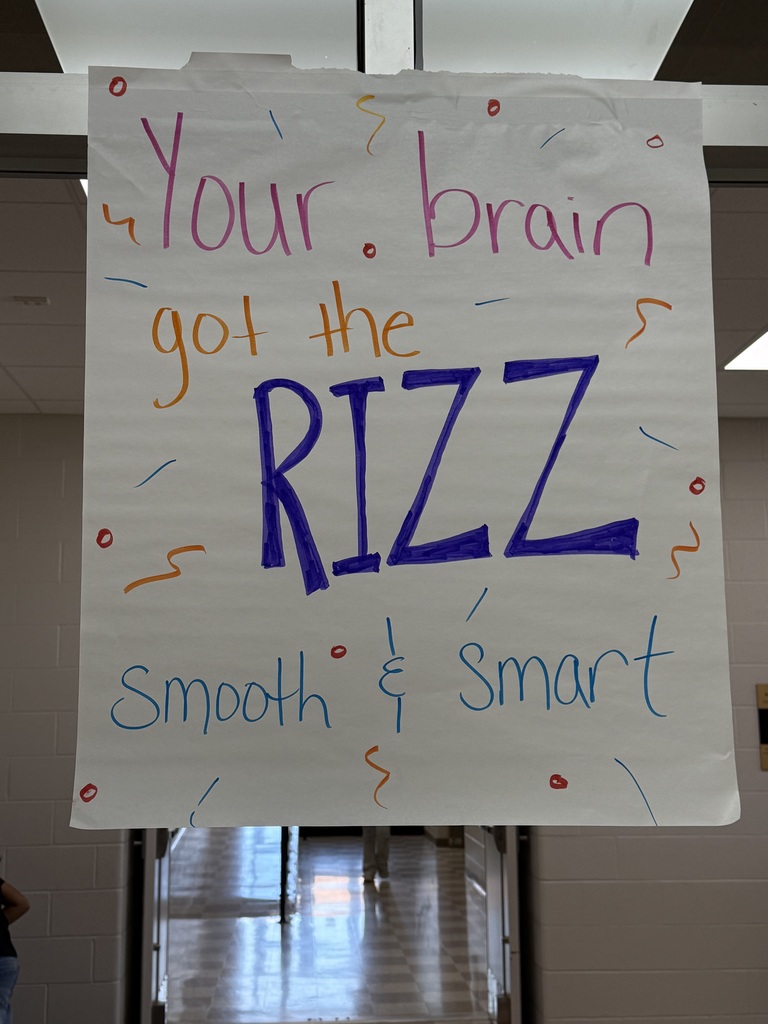 Your brain
got the
RIZZ
smooth & smart